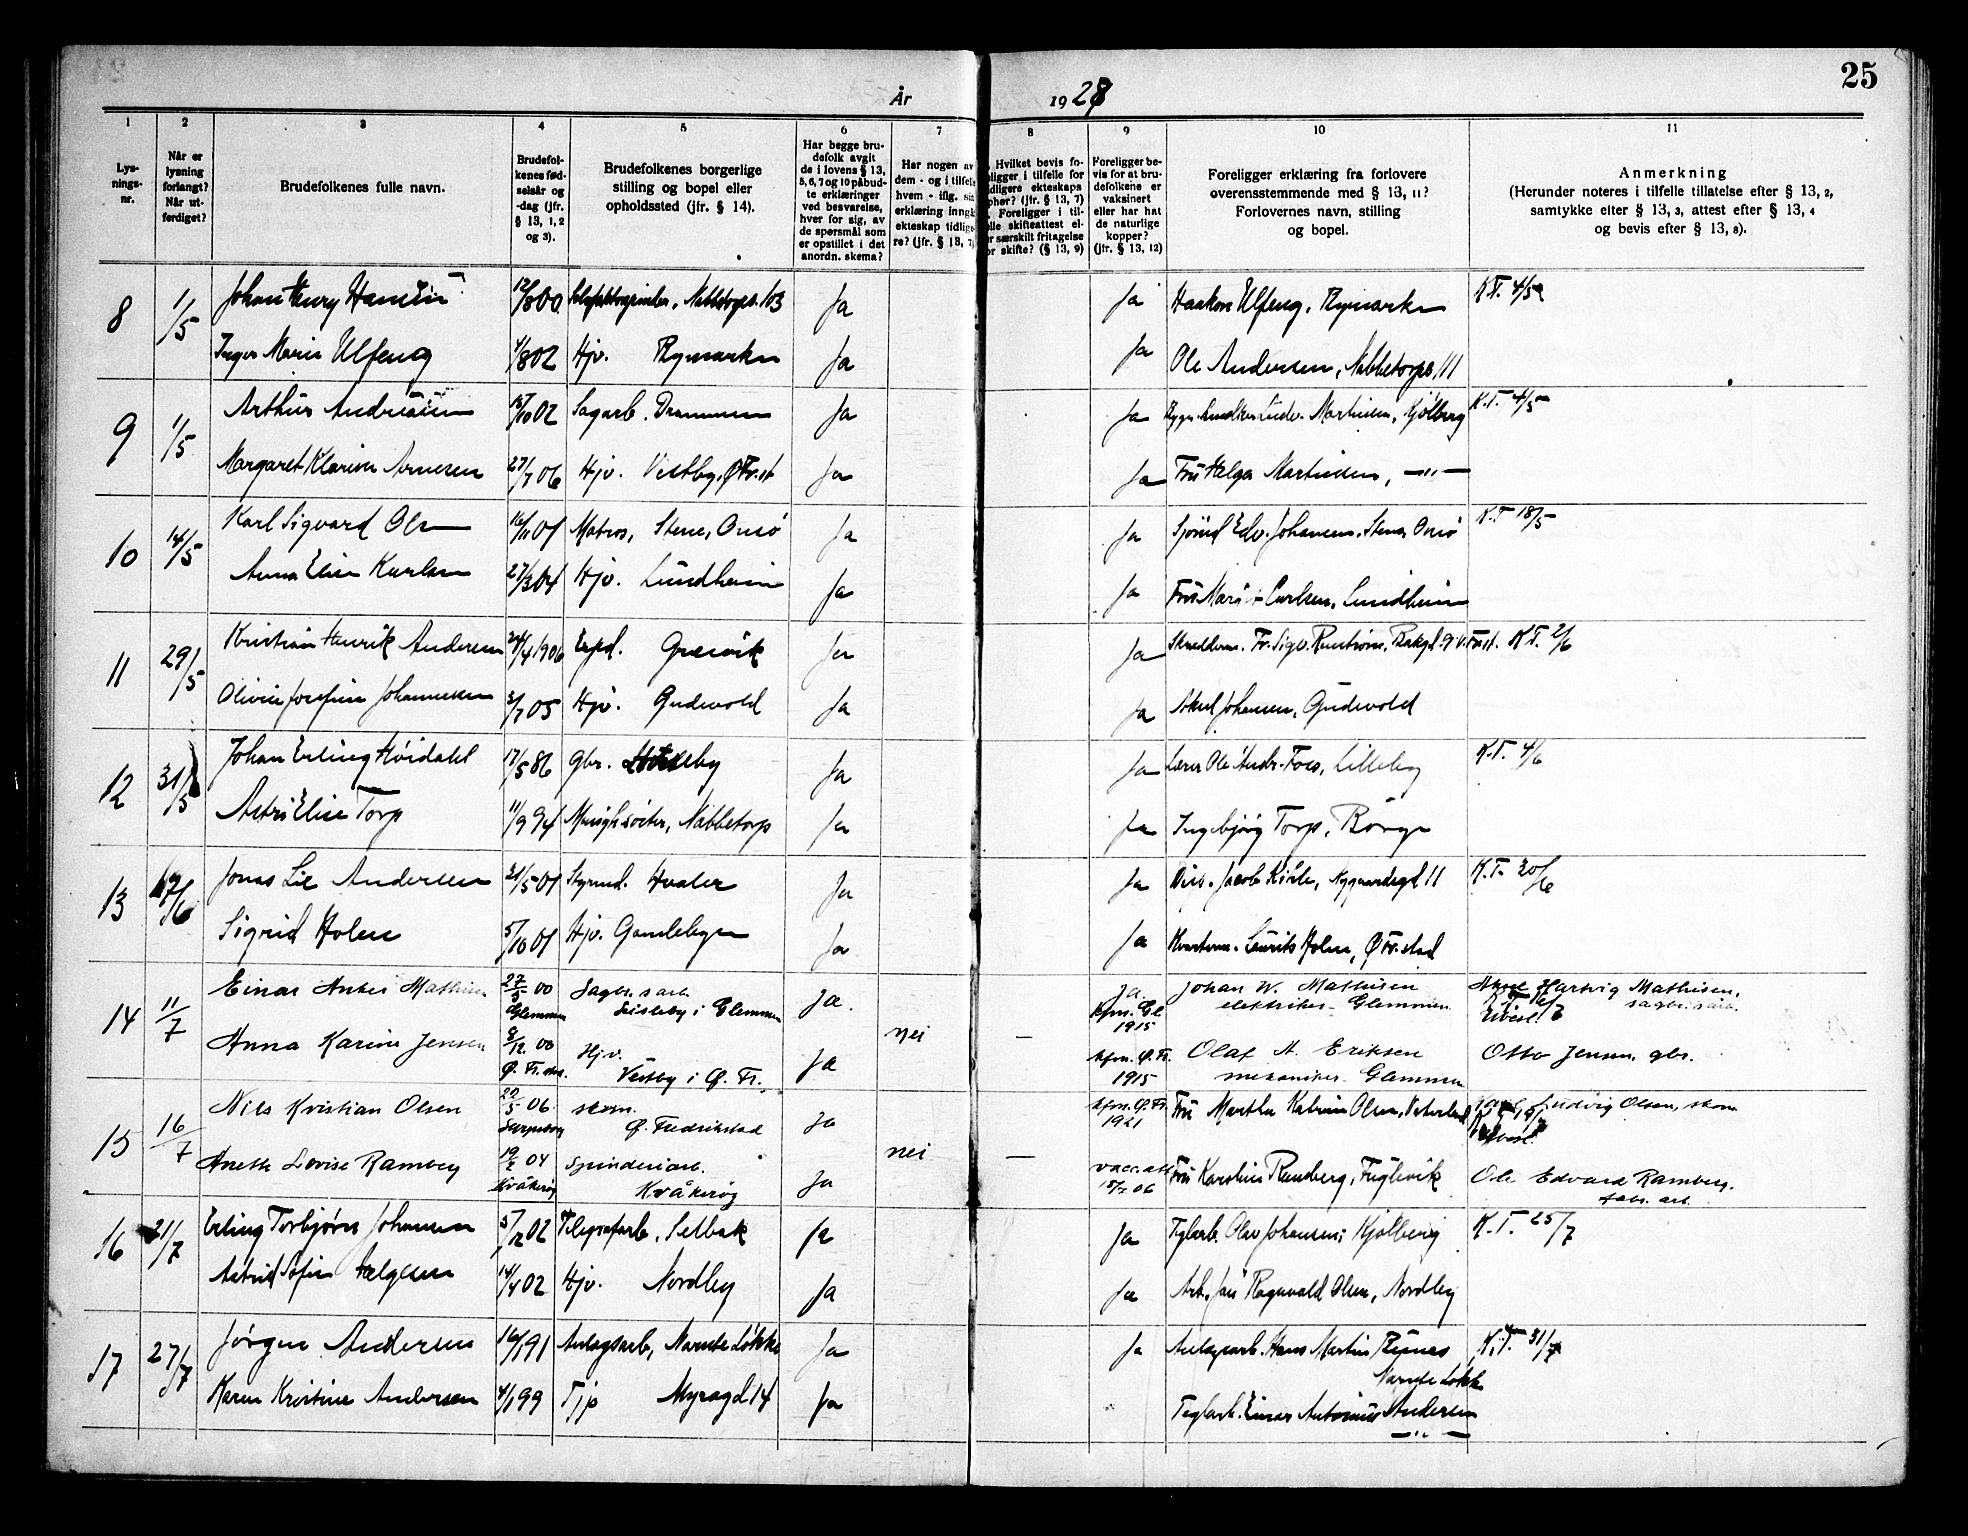 25
År 1928
1 2 3 4 5 6 7 8 9 10 11
Lys-
nings-
nr.
Når er
lysning
forlangt?
Når ut-
ferdiget?
Brudefolkenes fulle navn.
Brudefol-
kenes fød-
selsår og
-dag (jfr.
§ 13, 1, 2
og 3).
Brudefolkenes borgerlige
stilling og bopel eller
opholdssted (jfr. § 14).
Har begge bru-
defolk avgit
de i lovens § 13,
5, 6, 7 og 10 påbud-
te erklæringer
ved besvarelse,
hver for sig, av
de spørsmål som
er opstillet i det
anordn. skema?
Har nogen av
dem - og i tilfelle
hvem - iflg. sin
erklæring inngå
ekteskap tidlige
re? (jfr. § 13, 7)
Hvilket bevis fo-
religger i tilfelle for
tidligere ekteskaps
opphør? (jfr. § 13, 7)
Foreligger i til-
felle skifteattest el-
er særskilt fritagelse
for skifte? (§ 13, 9)
Foreligger be-
vis for at bru-
defolkene er
vaksinert
eller har hat
de naturlige
kopper?
(jfr. § 13, 12)
Foreligger erklæring fra forlovere
overensstemmende med § 13, 11?
Forlovernes navn, stilling
og bopel.
Anmerkning
(Herunder noteres i tilfelle tillatelse efter § 13, 2,
samtykke efter § 13, 3, attest efter § 13, 4
og bevis efter § 13, 8).
8 1/5 Johan Henry Hansen 12/8 00. Nabbetorpv. 103 Ja Ja Haakon Ulfeng, Rymarken K.T. 4/5
Inger Marie Ulfeng 4/8 02 Hjv. Rymarken Ja Ja Ole Andersen, Nabbetorpv. 111
9 1/5 Arthur Andreassen 15/10 02 Sagarb. Drammen Ja Ja Martinsen, Kjølberg K.T. 4/5
Margaret Klarisa Arnesen 27/7 06 Hjv. Vestby, Ø Fr.st Ja Ja Fru Helga Martinsen, —"—
10 14/5 Karl Sigvard Olsen 16/11 01 Matros, Stene, Onsø Ja Ja Sjømd Edv. Johansen, Stene, Onsø K.T 18/5
Anna Elise Karlsen 27/3 04 Hjv. Lundheim Ja Ja Fru Marie Carlsen, Lundheim
11 29/5 Kristian Henrik Andersen 24/4 1906 Exped. Gresvik Ja Ja Skredderm. Fr. Sigv. K.T. 2/6
Olivie Josefine Johannesen 3/7 05 Hjv. Gudevold Ja Ja Johansen, Gudevold
12 31/5 Johan Erling Høidahl 17/5 86 Gbr. Ja Ja Lærer Ole Andr. Foss, Lilleby K.T. 4/6
Astri Elise Torp 11/9 94 Nabbetorp Ja Ja Ingebjørg Torp, Borge
13 Jonas Lie Andersen 21/5 01 Styrmd. Hvaler Ja Ja Nygaardsgd 11 K.T. 20/6
Sigrid Holm 5/10 01 Hjv. Gamlebyen Ja Ja Laurits Holm, Ø Fr.stad
14 11/7 Einar Anker Mathisen 27/5 00 Sagbr.s arb. Ja. Ja. Johan W. Mathisen Hartvig Mathisen,
Glemmen Lisleby i Glemmen kfm. Gl elektriker - Glemmen sagbr.s arb.
1915
Anna Karine Jensen 8/12 00 Hjv. Ja nei — kfm. Ø. Fr. Olaf A. Eriksen Otto Jensen, gbr.
Ø. Fr.stad. Vestby i Ø. Fr. 1915 mekaniker - Glemmen
15 16/7 Nils Kristian Olsen 20/5 06. skom. Ja kfm. Ø. Fr. Fru Martha Katrine Olsen, Ludvig Olsen, skom
Sarpsborg Ø. Fredrikstad 1921
Anette Lovise Ramberg 19/2 04 Spinderiarb. Ja nei — vacc.att Fru Karoline Rundberg, Fuglevik Ole Edvard Ramberg.
Kråkerøy Kråkerøy 15/7 06 fabr. arb.
16 21/7 Erling Torbjørn Johansen 5/12 02 Telegrafarb, Selbak Ja Ja Teglarb. Olav Johansen, Kjølberg K.T. 25/7
Astrid Sofie Helgesen 14/4 02 Hjv. Nordby Ja Ja Arb. Ragnvald Olsen, Nordby
17 27/7 Jørgen Andersen 16/1 91 Anlagsarb, Narnte Løkke Ja Ja Anlagsarb. Hans Martin K.T. 31/7
Narnte Løkk
Karen Kristine Andersen 4/1 99 Tjp Myragd 14 Ja Teglarb. Einar Antonius Andersen
—"—